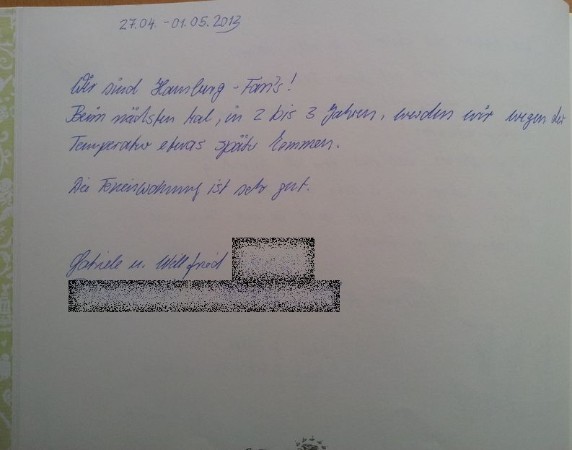 27.04. - 01.05.2013
Wir sind Hamburg - Fan's!
Beim nächsten Mal, in 2 bis 3 Jahren, werden wir wegen der
Temperatur etwas später kommen.
Die Ferienwohnung ist sehr gut.
Gabriele u. Willfried